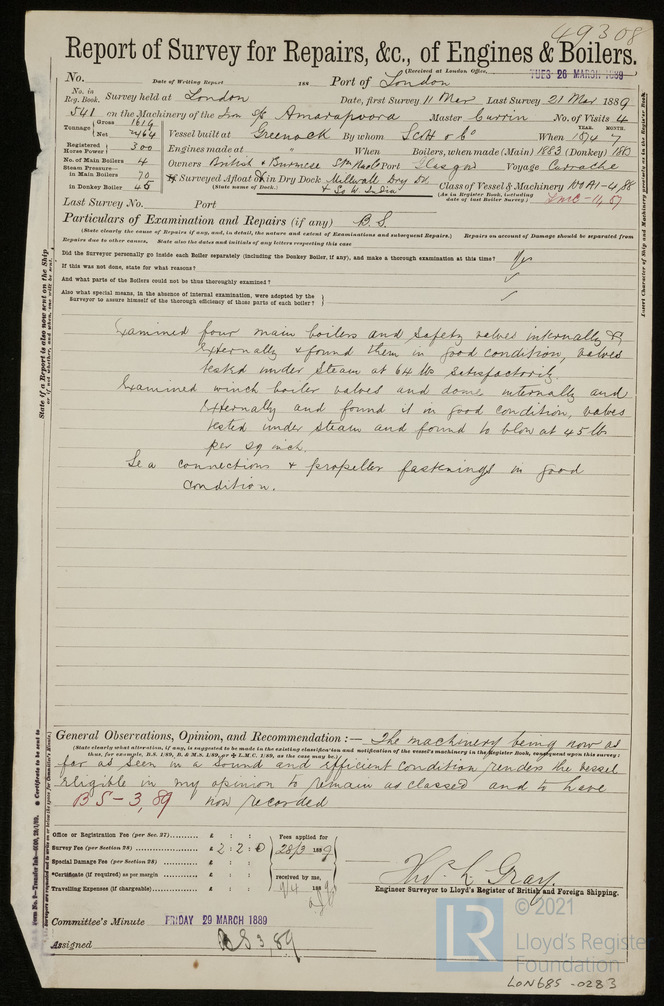 49308
Report of Survey for Repairs, &c., of Engines & Boilers.
(Received at London Office, TUES 26 MARCH 1889
No. Date of Writing Report 188 Port of London
No. in Reg. Book. Survey held at London Date, first Survey 11 Mar Last Survey 21 Mar 1889
541 on the Machinery of the Iron S/s Amarapoora Master Currin No. of Visits 4
Tonnage Gross 1619 Net 2464 Vessel built at Greenock By whom Scott & Co When YEAR. 1874 MONTH. 7
Registered Horse Power 300 Engines made at " When Boilers, when made (Main) 1883 (Donkey) 1883
No. of Main Boilers 4 Owners British & Burmese Stm Nav Co Port Glasgow Voyage Currachee
Steam Pressure— in Main Boilers 70 If Surveyed Afloat or in Dry Dock Millwall Dry Dk
in Donkey Boiler 45 (State name of Dock.) & So W India Class of Vessel & Machinery 100A1-4,88
(As in Register Book, including date of last Boiler Survey.) LMC-11,87
Last Survey No. Port
Particulars of Examination and Repairs (if any) B.S.
(State clearly the cause of Repairs if any, and, in detail, the nature and extent of Examinations and subsequent Repairs.) Repairs on account of Damage should be separated from
Repairs due to other causes. State also the dates and initials of any letters respecting this case
Did the Surveyor personally go inside each Boiler separately (including the Donkey Boiler, if any), and make a thorough examination at this time? Yes
If this was not done, state for what reasons?
And what parts of the Boilers could not be thus thoroughly examined?
Also what special means, in the absence of internal examination, were adopted by the
Surveyor to assure himself of the thorough efficiency of those parts of each boiler?
Examined four main boilers and safety valves internally &
externally & found them in good condition, valves
tested under steam at 64 lbs satisfactorily.
Examined winch boiler valves and dome internally and
externally and found it in good condition, valves
tested under steam and found to blow at 45 lb
per sq inch.
Sea connections & propeller fastenings in good
condition.
General Observations, Opinion, and Recommendation :— The machinery being now as
(State clearly what alteration, if any, is suggested to be made in the existing classification and notification of the vessel's machinery in the Register Book, consequent upon this survey;
thus, for example, B.S. 1/89, B. & M.S. 1/89, or ✠ L.M.C. 1/89, as the case may be.)
far as seen in a sound and efficient condition renders the vessel
eligible in my opinion to remain as classed and to have
BS-3,89 now recorded
Office or Registration Fee (per Sec. 27)........ £ : :
Survey Fee (per Section 28)........ £ 2 : 2 : 0
Special Damage Fee (per Section 28)........ £ : :
*Certificate (if required) as per margin £ : :
Travelling Expenses (if chargeable)........ £ : :
Fees applied for
28/3 1889
received by me,
Thos. L. Gray.
Engineer Surveyor to Lloyd's Register of British and Foreign Shipping.
Committee's Minute FRIDAY 29 MARCH 1889
Assigned BS 3,89
State if a Report is also now sent on the Ship
or if not, whether, and when, one will be sent.
Insert Character of Ship and Machinery precisely as in the Register Book.
© 2021
LR
Lloyd's Register
Foundation
LON685-0283